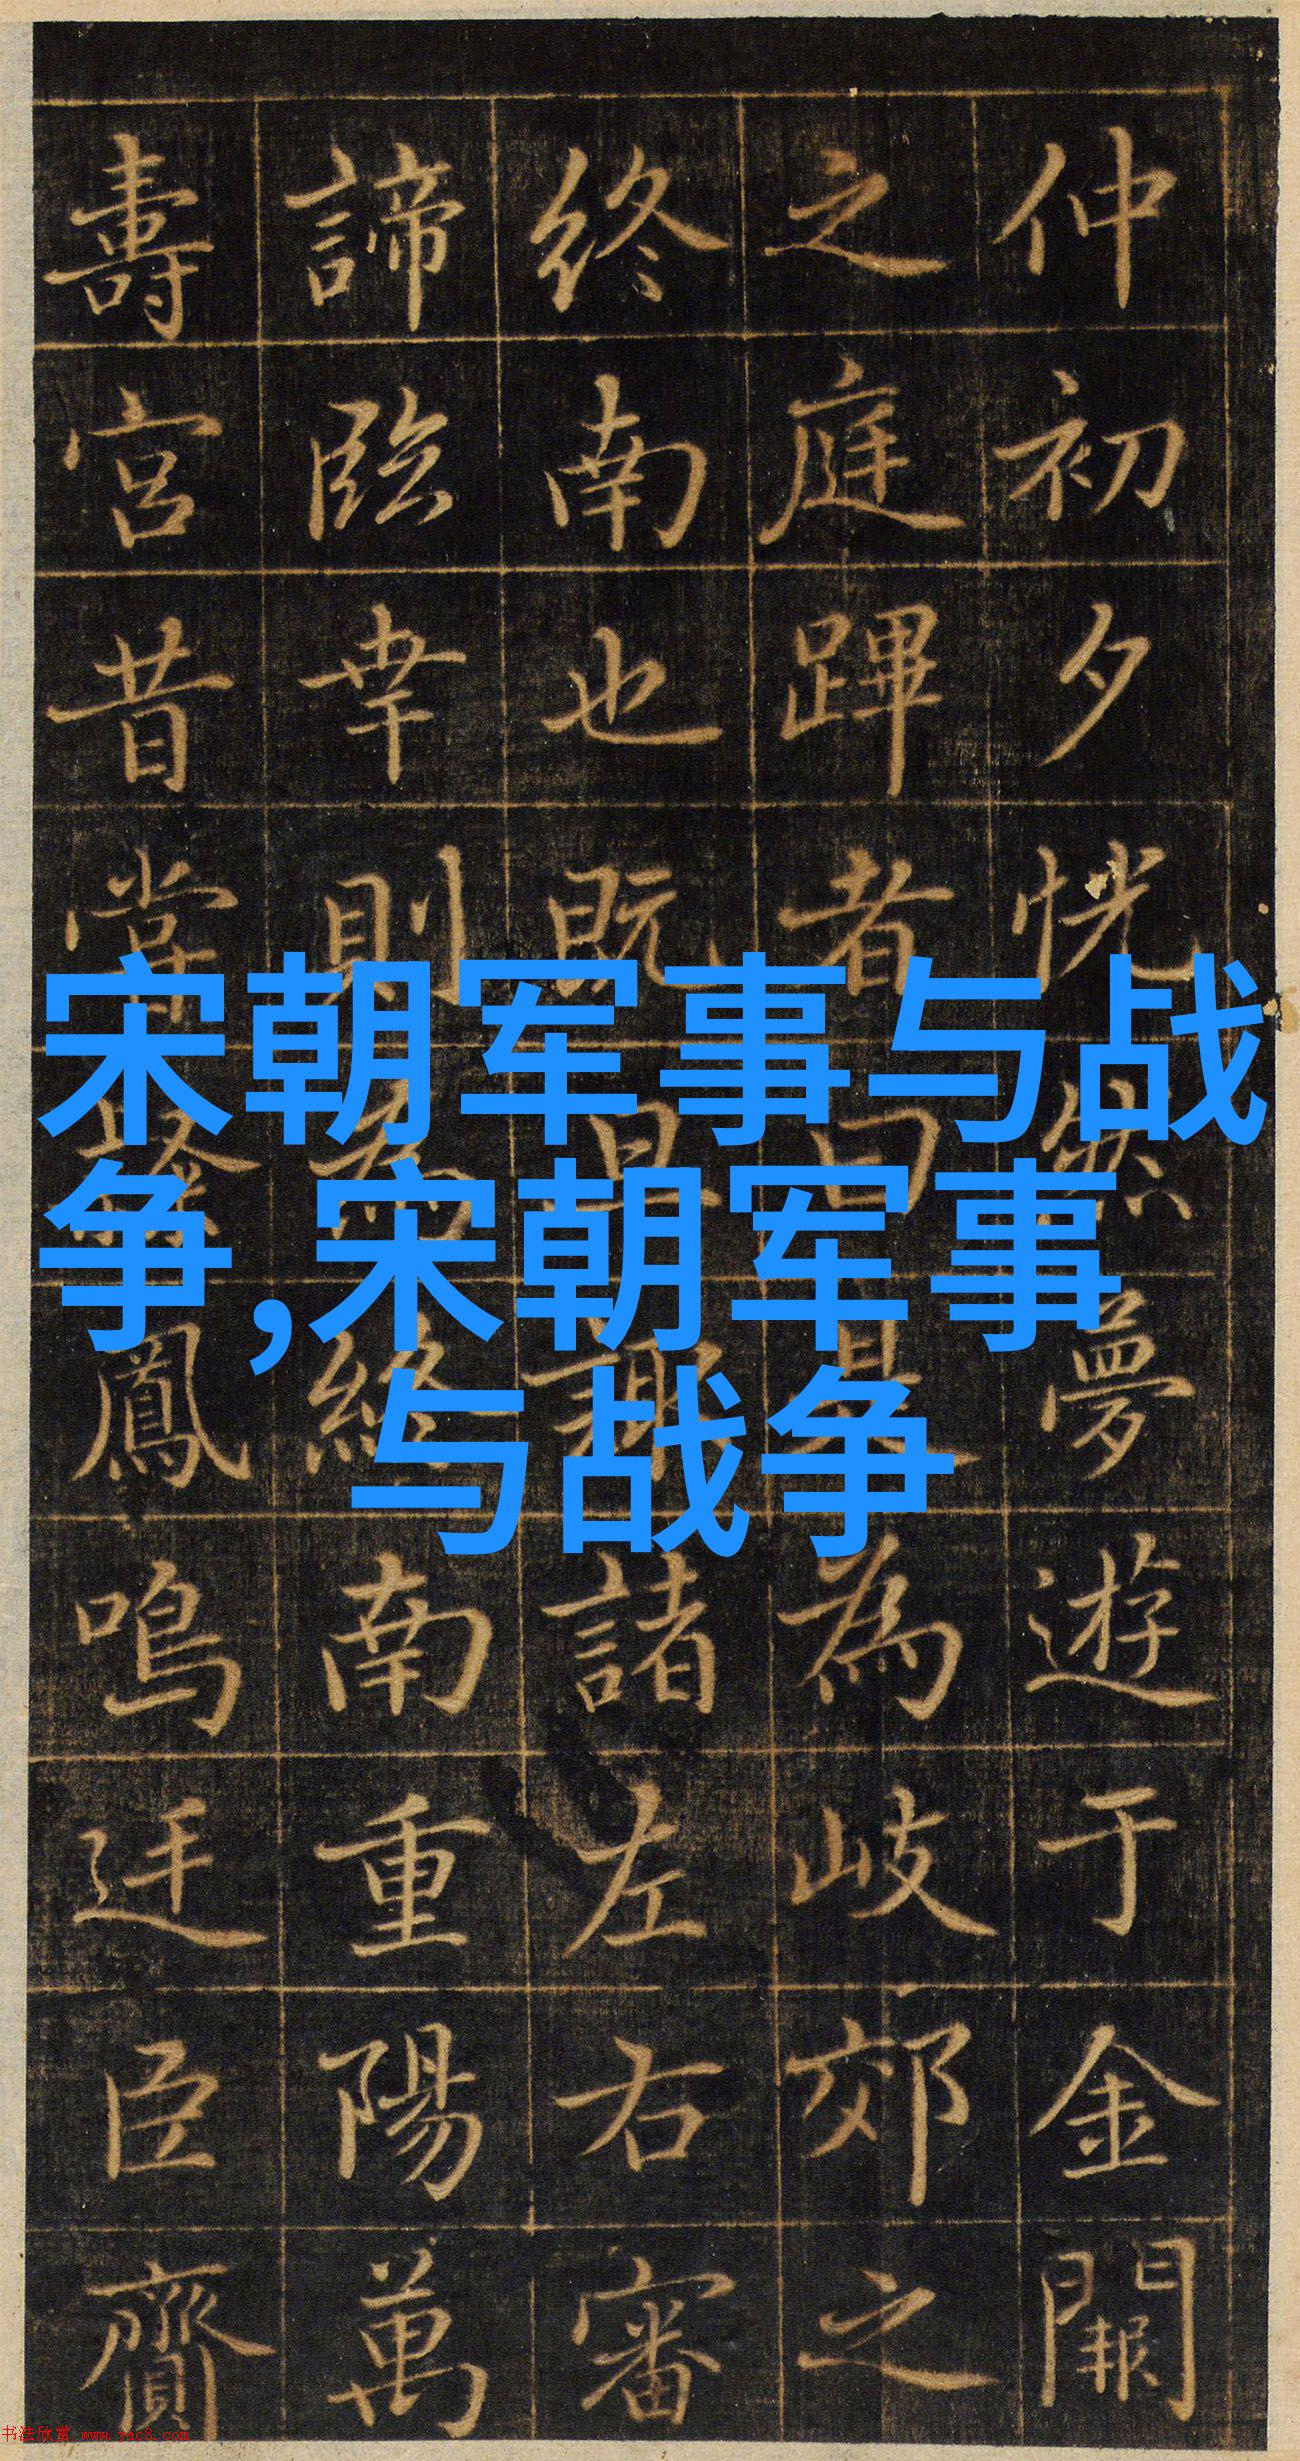 宋朝军事与战
争,宋朝军事
与战争
仲初夕恍然夢遊于金闕
之庭蹕者曰是為岐郊之
終南也既旦諸左右審
諦臨幸則為終南重陽萬
壽宮昔嘗鳳鳴迋臣齎
书法欣赏 www.yac8.com